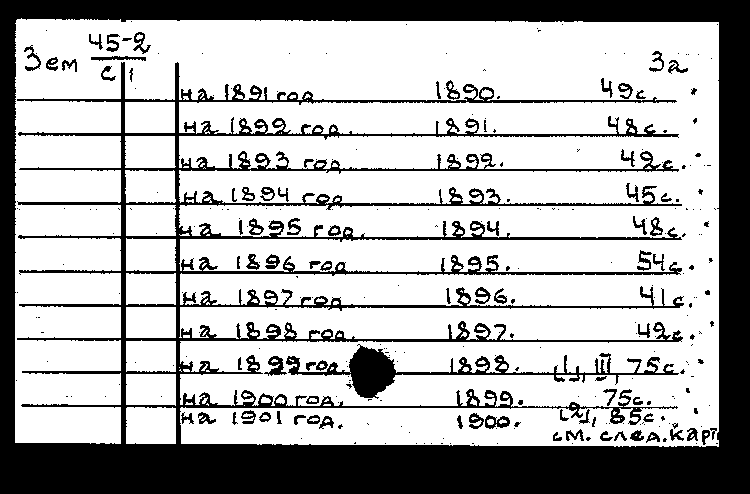 Зем 45-2 3а
с 1
на 1891 год 1890. 49с.
на 1892 год. 1891. 48с.
на 1893 год. 1892. 42с.
на 1894 год 1893. 45с.
на 1895 год. 1894. 48с.
на 1896 год 1895. 54с.
на 1897 год 1896. 41с.
на 1898 год. 1897. 42с.
на 1899 год 1898. [1], III, 75с.
на 1900 год. 1899. 75с.
на 1901 год. 1900. [2], 85с.
см. след. карт